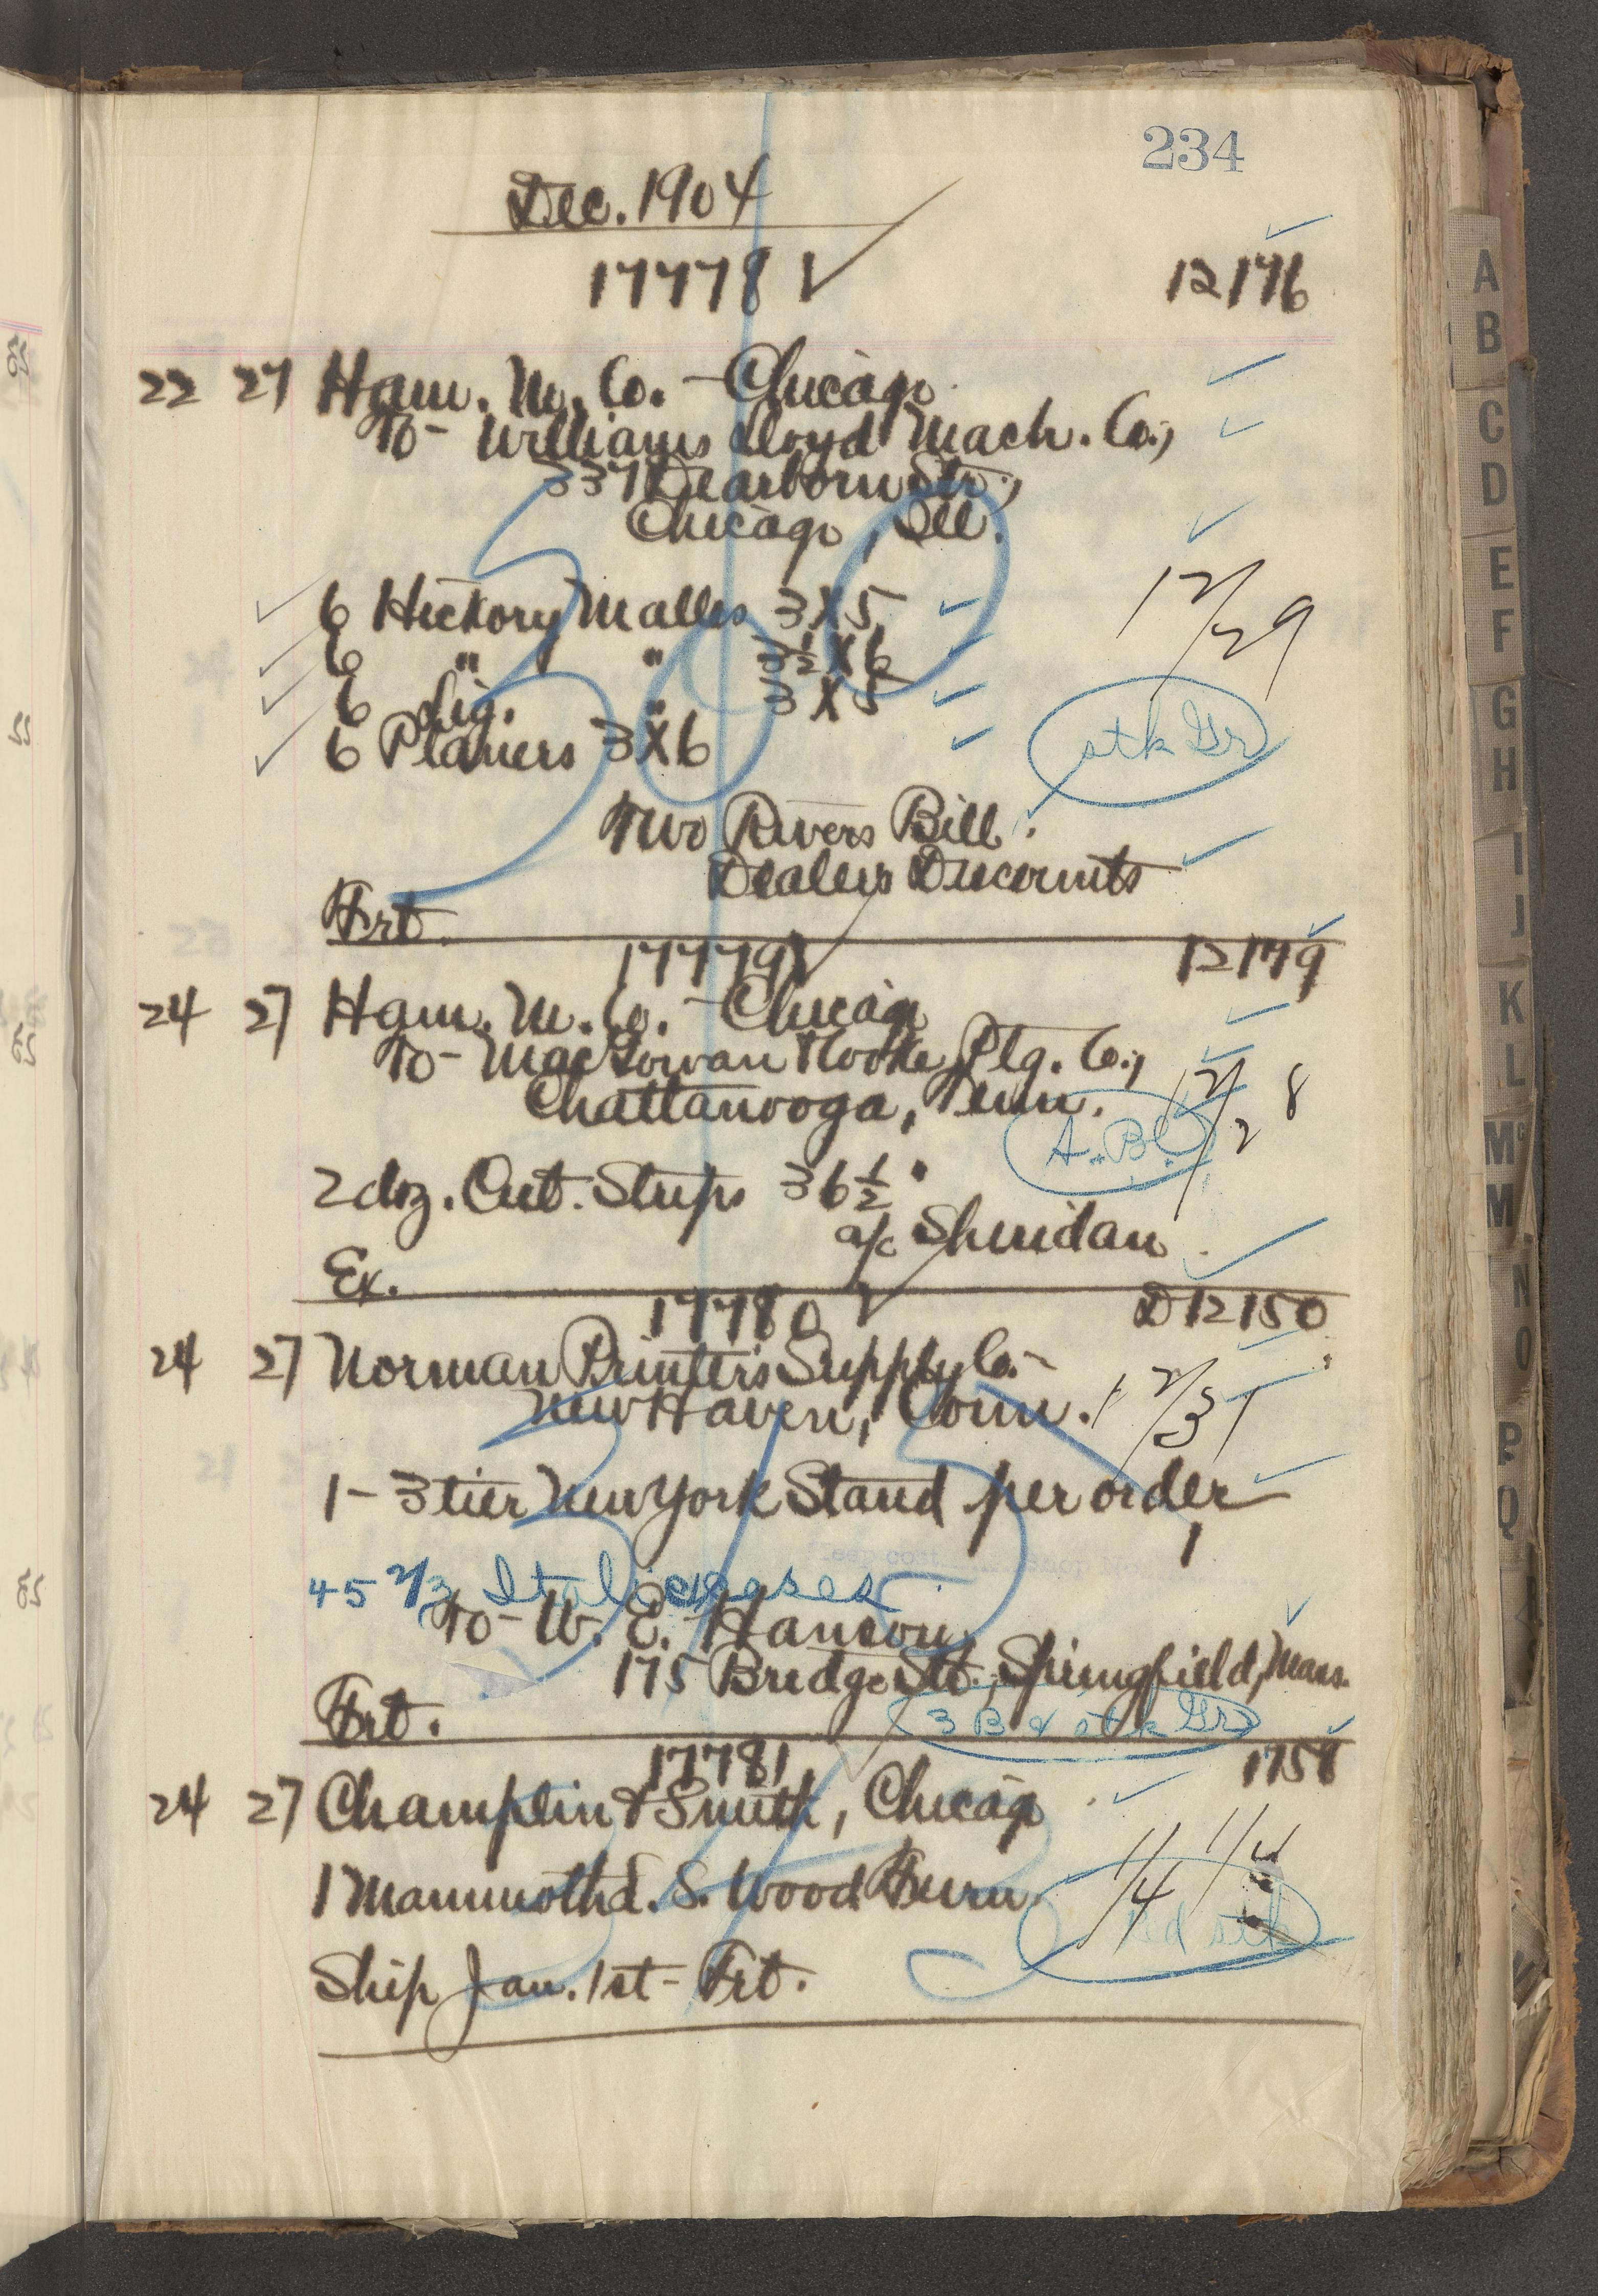 234
Dec. 1904
17778 12176
22 27 Ham. M. Co. - Chicago
To - Williams Lloyd Mach. Co.,
337 Dearborn Str.,
Chicago, Ill.
6 Hickory Mallets 3 X 5
12/29
6 " " 3½ X 6
6 Lig. " 3 X 5
6 Planers 3 X 6
stk Gr
Two Rivers Bill.
Dealers Discounts
Frt.
17779 12179
24 27 Ham. M. Co. - Chicago
To - MacGowan & Cooke Ptg. Co.,
12/28
Chattanooga, Tenn.
A. B.
2 doz. Cut. Strips 36½"
a/c Sheridan
Ex.
17780 D12150
24 27 Norman Printers Supply Co. -
New Haven, Conn.
12/31
1 - 3 tier New York Stand per order
45 2/3 Ital cases
To - W. E. Hanson,
175 Bridge St., Springfield, Mass.
Frt.
3 B & stk Gr
17781 1758
24 27 Champlin & Smith, Chicago
1/4
1 Mammoth d. S. Wood Furn.
stk
Ship Jan. 1st - Frt.
A
B
C
D
E
F
G
H
I
J
K
L
M
M
N
O
P
Q